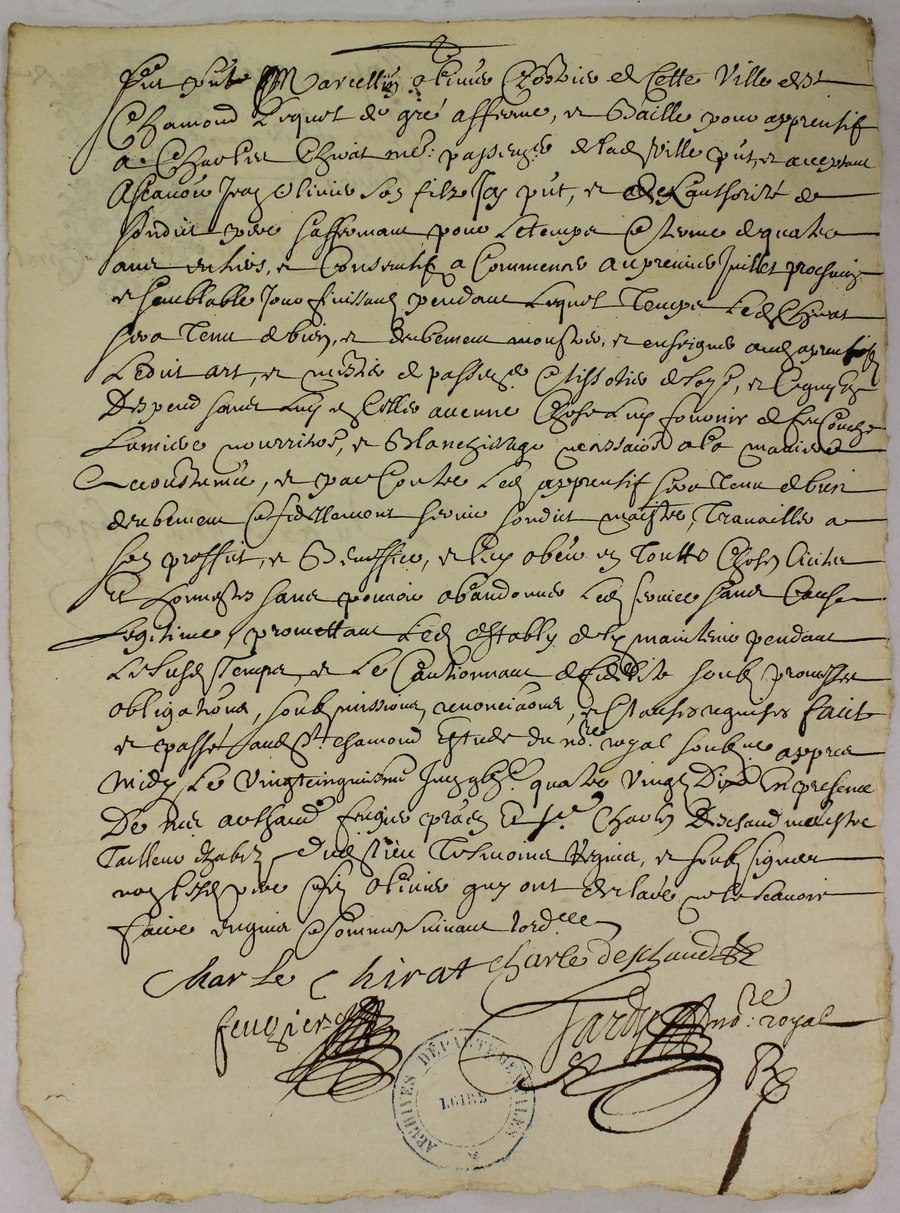 Fut pnt Marcellin Olivie de Cette Ville de St
Chamond Lequel de gré afferme, et Baille pour apprentif
a Charles Chirat me. passem.r de lad. Ville pnt, et acceptant
Ascavoir Jean Olivie son filz Icy pnt, et de l'authorité de
sondit pere saffermant pour Le temps et terme de quatre
ans entiers, et Consecutifz a Commencer au premier Juillet prochain
et semblable Jour finissant pendant Lequel Temps Led. Chirat
sera Tenu de bien, et deubement monstrer, et enseigner aud. aprentif
Ledit art, et mestier de passem.r et tissotier de soye, et Ce quy En
Despend sans Luy en Celler aucune Chose Luy fournir de feu Couche
Lumiere nourriture, et Blanchissage necessaire a la maniere
accoustumée, et par Contre Led. apprentif sera Tenu de bien
deubement et fidellement servir sondit maistre, Travailler a
son proffit, et Beneffice, et luy obeir en Touttes Choses licites
Et honnestes sans pouvoir abandonner Led. service sans Cause
Legitime, promettant Led. establ y maintenir pendant
Le susd. Temps, et Le Cautionnant de fidellité soubz promesses
obligations, soubmissions, renonciations, et Clauses requises faict
et passé aud. St. chamond Estude du no.re royal soubz.né appres
Midy Le Vingtcinquiesme Juin quatre Vingt Dix En presence
De me feugier praen Et sr. Charles Dechaud maistre
Tailleur d'habitz dud. lieu Tesmoins Requis, et soubsignez
non lesd. pere et filz Olivie quy ont declaré ne le scavoir
faire enquis et sommes suivant l'ord.ce
Charle Chirat Charle deschaud
feugier
Tardy no.re royal
R
ARCHIVES DÉPARTEMENTALES
LOIRE